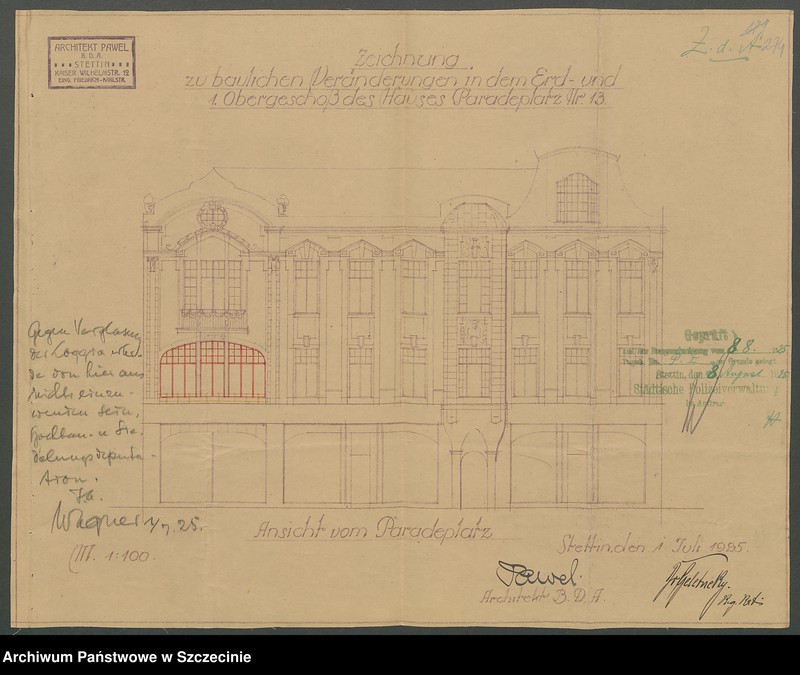 ARCHITEKT PAWEL
B.D.A.
STETTIN
KAISER WILHELMSTR. 12
ECKE FRIEDRICH-KARLSTR.
Z. d. A.
Zeichnung
zu baulichen Veränderungen in dem Erd- und
1. Obergeschoß des Hauses Paradeplatz Nr. 13.
Gegen Verglasung
der Loggia würde
von hier aus
nichts einzu-
wenden sein.
Hochbau- u. Sie-
delungsdeputa-
tion.
Wagner 1/7. 25.
Geprüft
8. 8. 25
Stettin, den 8. August 1925
Städtische Polizeiverwaltung
Ansicht vom Paradeplatz
M. 1:100.
Stettin, den 1. Juli 1925.
Pawel.
Architekt B.D.A.
Archiwum Państwowe w Szczecinie